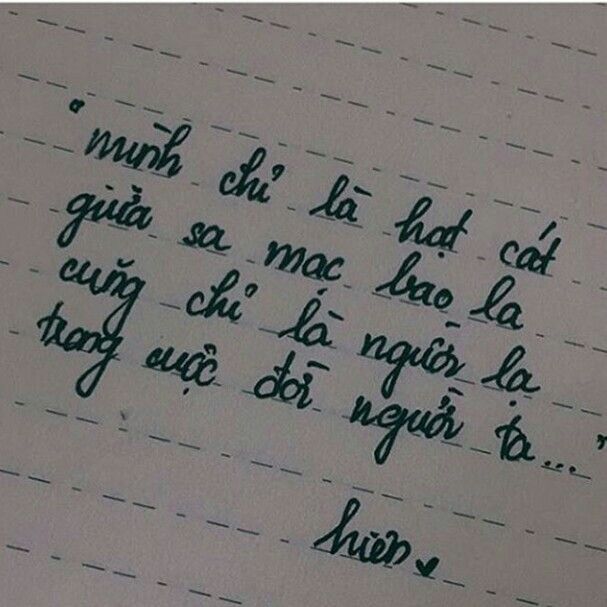 "mình chỉ là hạt cát
giữa sa mạc bao la
cũng chỉ là người lạ
trong cuộc đời người ta..."
hiên